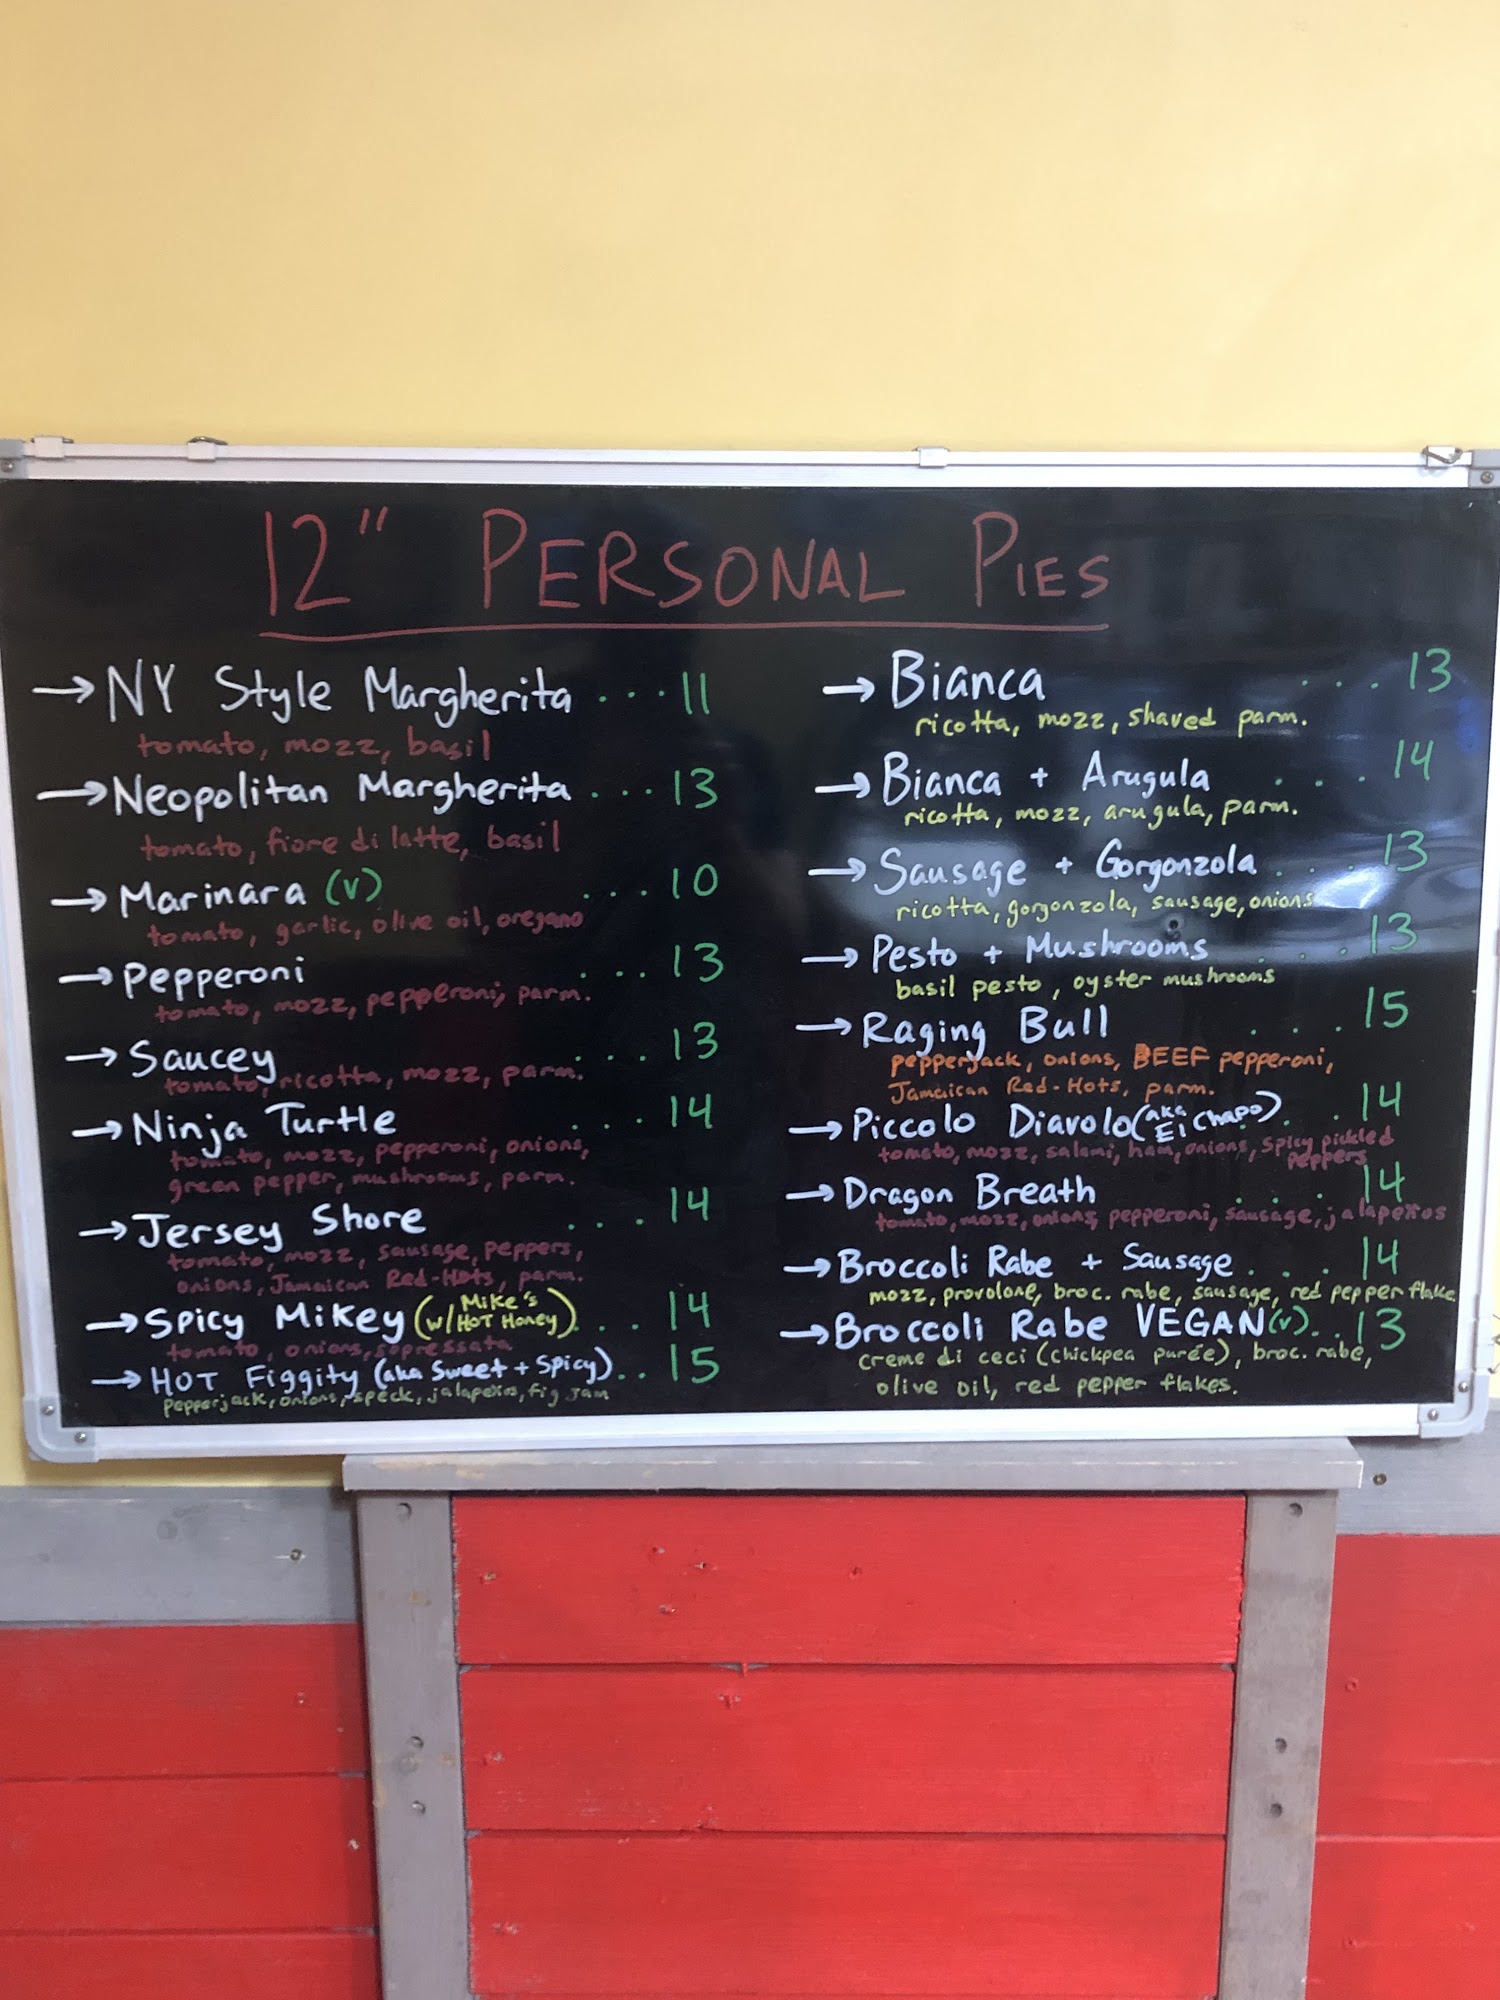 12" PERSONAL PIES
→ NY Style Margherita ... 11
tomato, mozz, basil
→ Neopolitan Margherita ... 13
tomato, fiore di latte, basil
→ Marinara (v) ... 10
tomato, garlic, olive oil, oregano
→ Pepperoni ... 13
tomato, mozz, pepperoni, parm.
→ Saucey ... 13
tomato, ricotta, mozz, parm.
→ Ninja Turtle ... 14
tomato, mozz, pepperoni, onions,
green pepper, mushrooms, parm.
→ Jersey Shore ... 14
tomato, mozz, sausage, peppers,
onions, Jamaican Red-Hots, parm.
→ Spicy Mikey (Mike's w/HOT Honey) .. 14
tomato, onions, sopressata
→ HOT Figgity (aka Sweet + Spicy) .. 15
pepperjack, onions, speck, jalapeños, fig jam
→ Bianca ... 13
ricotta, mozz, shaved parm.
→ Bianca + Arugula ... 14
ricotta, mozz, arugula, parm.
→ Sausage + Gorgonzola ... 13
ricotta, gorgonzola, sausage, onions
→ Pesto + Mushrooms ... 13
basil pesto, oyster mushrooms
→ Raging Bull ... 15
pepperjack, onions, BEEF pepperoni,
Jamaican Red-Hots, parm.
→ Piccolo Diavolo (aka El Chapo) . 14
tomato, mozz, salami, ham, onions, spicy pickled
peppers
→ Dragon Breath ... 14
tomato, mozz, onions, pepperoni, sausage, jalapeños
→ Broccoli Rabe + Sausage ... 14
mozz, provolone, broc. rabe, sausage, red pepper flake
→ Broccoli Rabe VEGAN (v) .. 13
creme di ceci (chickpea purée), broc. rabe,
olive oil, red pepper flakes.